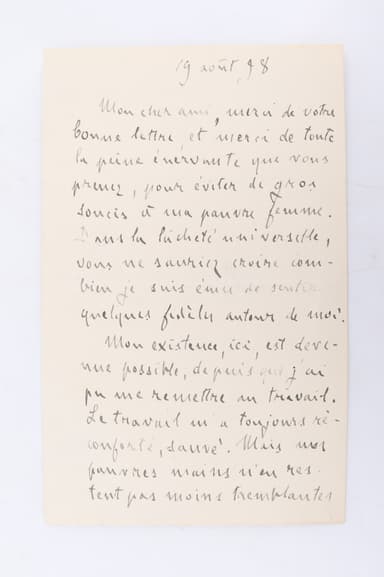 19 août, 98
Mon cher ami, merci de votre
bonne lettre, et merci de toute
la peine énervante que vous
prenez, pour éviter de gros
soucis à ma pauvre femme.
Dans la lâcheté universelle,
vous ne sauriez croire com-
bien je suis ému de sentir
quelques fidèles autour de moi.
Mon existence, ici, est deve-
nue possible, depuis que j'ai
pu me remettre au travail.
Le travail m'a toujours ré-
conforté, sauvé. Mais mes
pauvres mains n'en res-
tent pas moins tremblantes